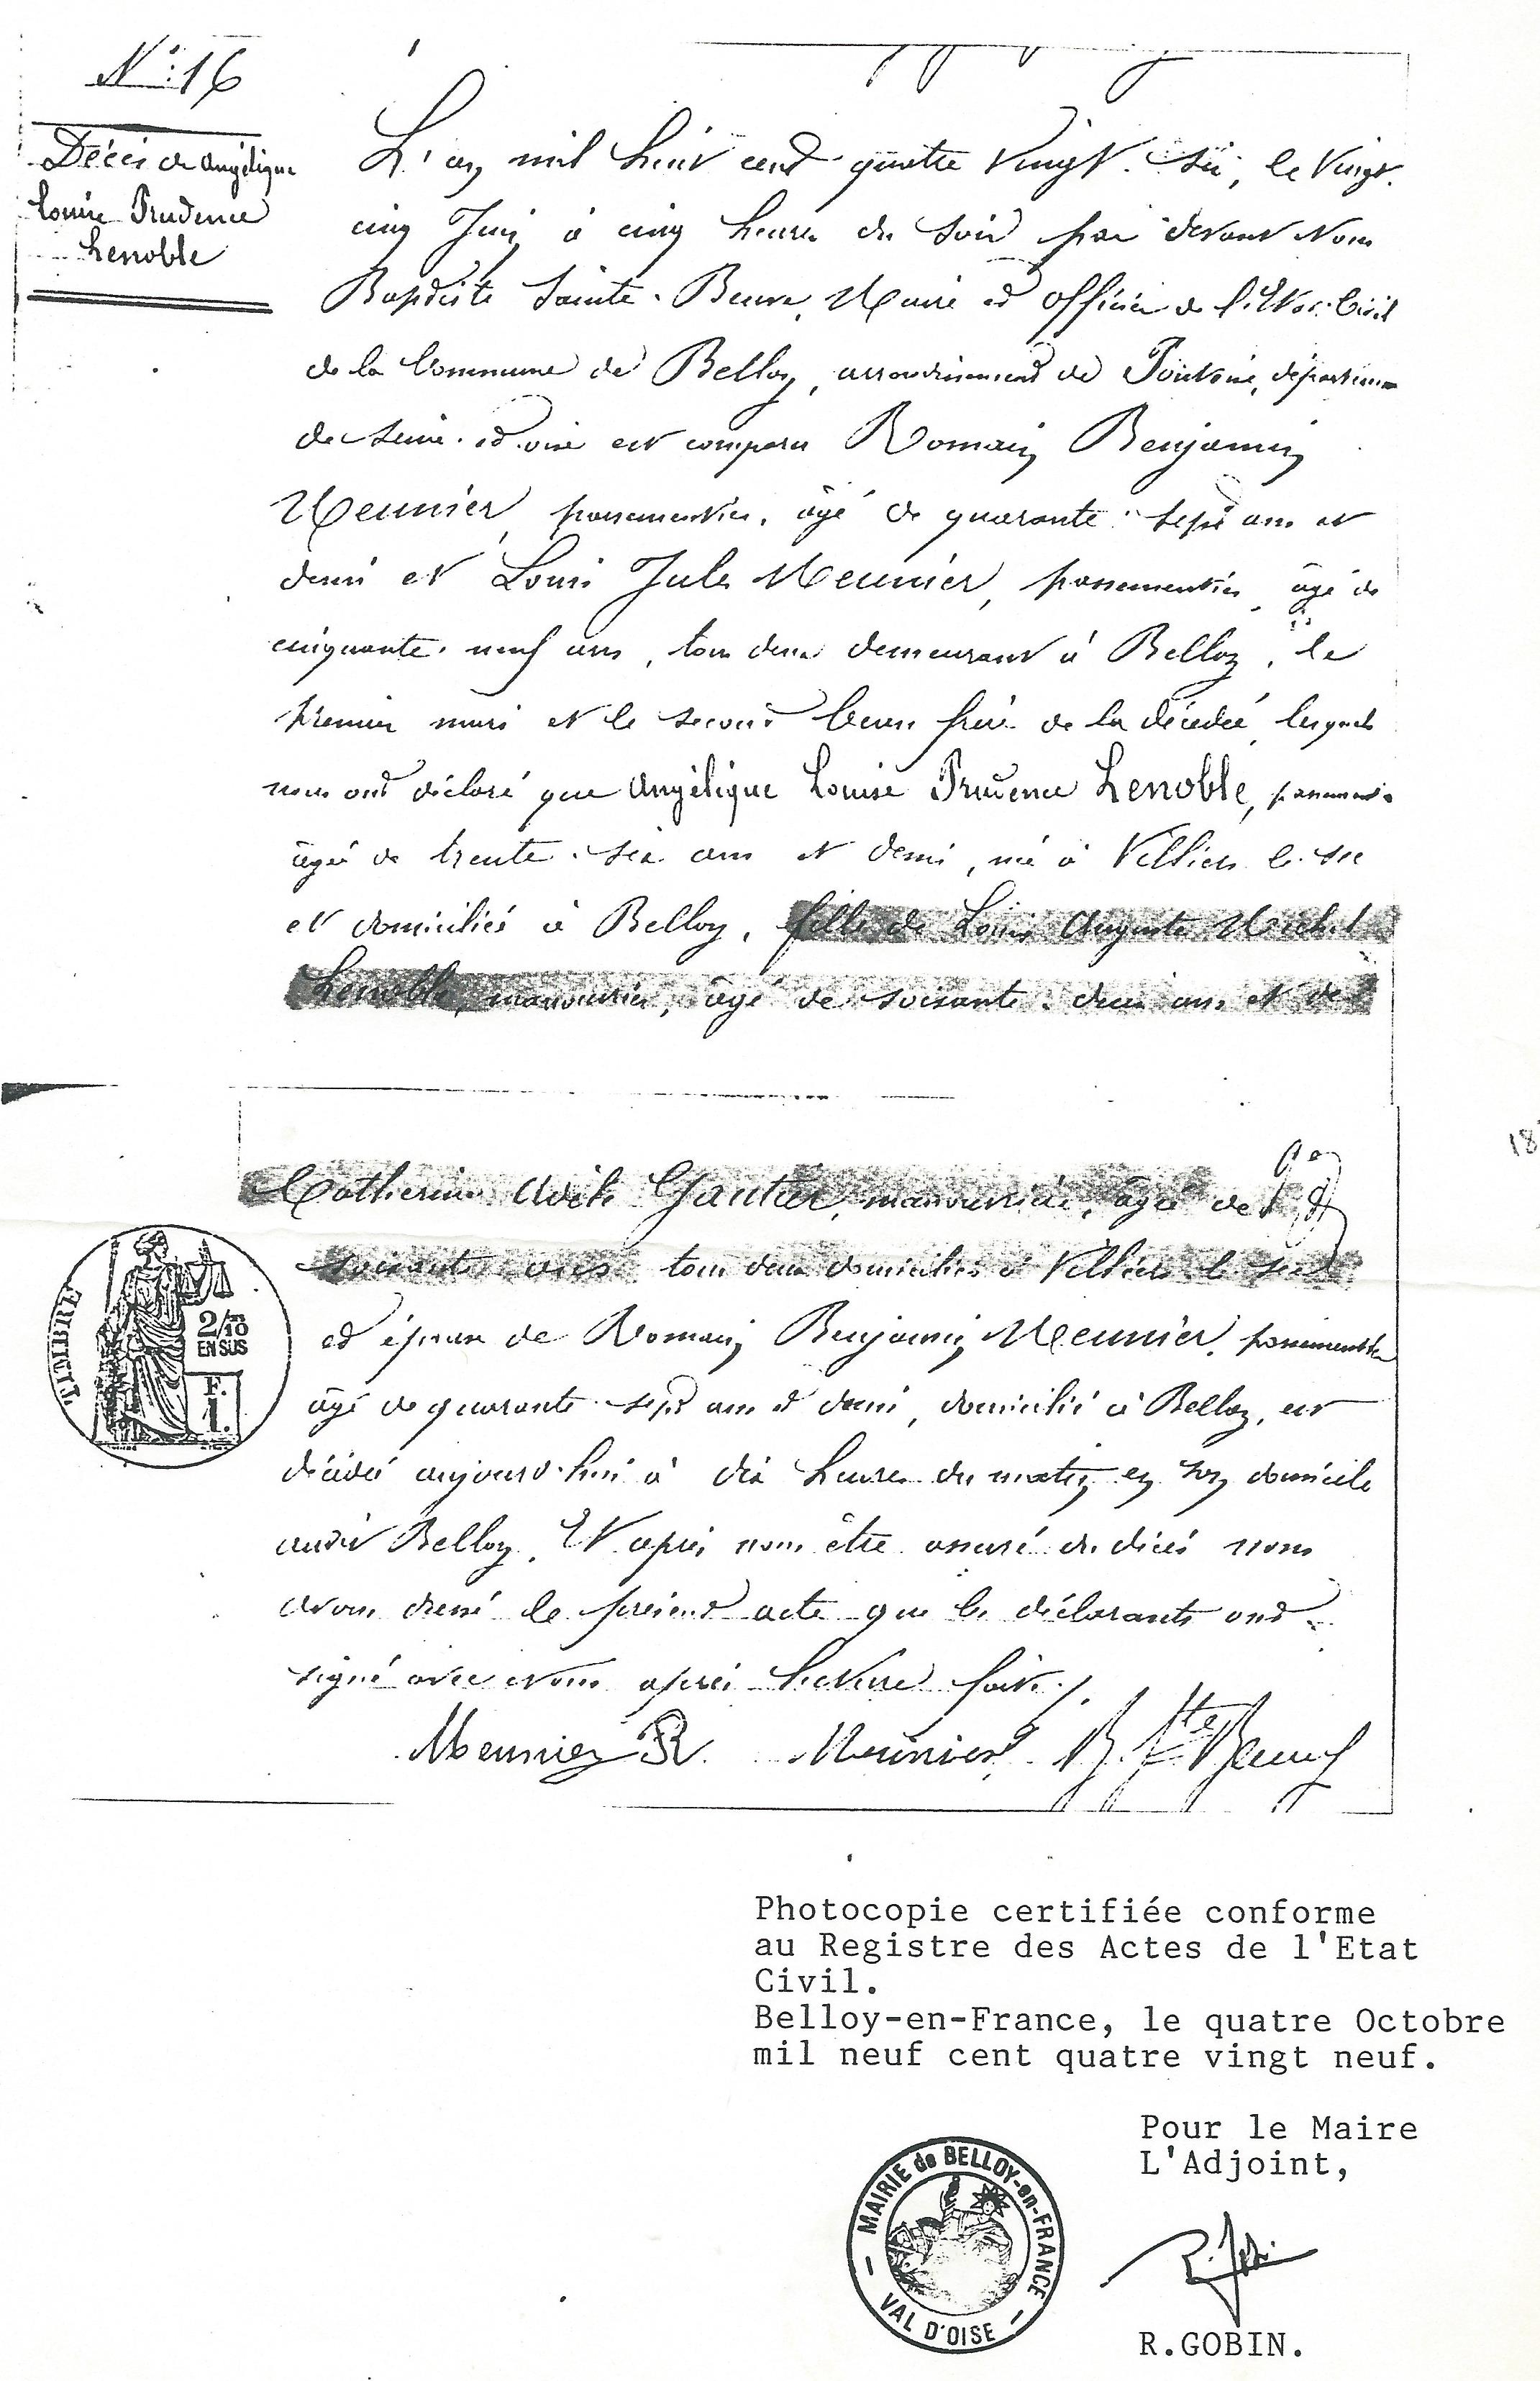 N° 16
Décès de Angélique
Louise Prudence
Lenoble
L'an mil huit cent quatre vingt six, le vingt
cinq Juin à cinq heures du soir par devant Nous
Baptiste Sainte-Beuve, Maire et officier de l'Etat-Civil
de la Commune de Belloy, arrondissement de Pontoise, département
de Seine-et-oise est comparu Romain Benjamin
Meunier, passementier, âgé de quarante-sept ans et
demi et Louis Jules Meunier, passementier, âgé de
cinquante-neuf ans, tous deux demeurant à Belloy, le
premier mari et le second beau frère de la décédée, lesquels
nous ont déclaré que Angélique Louise Prudence Lenoble,
âgée de trente-six ans et demi, née à Villiers le sec
et domiciliée à Belloy, fille de Louis Auguste Michel
Lenoble, manouvrier, âgé de soixante-deux ans et de
Catherine Gautier, manouvrière, âgée de
soixante ans tous deux domiciliés à Villiers le sec
et épouse de Romain Benjamin Meunier, passementier
âgé de quarante-sept ans et demi, domicilié à Belloy, est
décédée aujourd'hui à dix heures du matin en son domicile
audit Belloy. Et après nous être assuré du décès nous
avons dressé le présent acte que les déclarants ont
signé avec nous après lecture faite./.
Meunier R. Meunier B. Ste Beuve
TIMBRE
2/10
EN SUS
F.
1.
18
Photocopie certifiée conforme
au Registre des Actes de l'Etat
Civil.
Belloy-en-France, le quatre Octobre
mil neuf cent quatre vingt neuf.
Pour le Maire
L'Adjoint,
MAIRIE de BELLOY-en-FRANCE
VAL D'OISE
R.GOBIN.